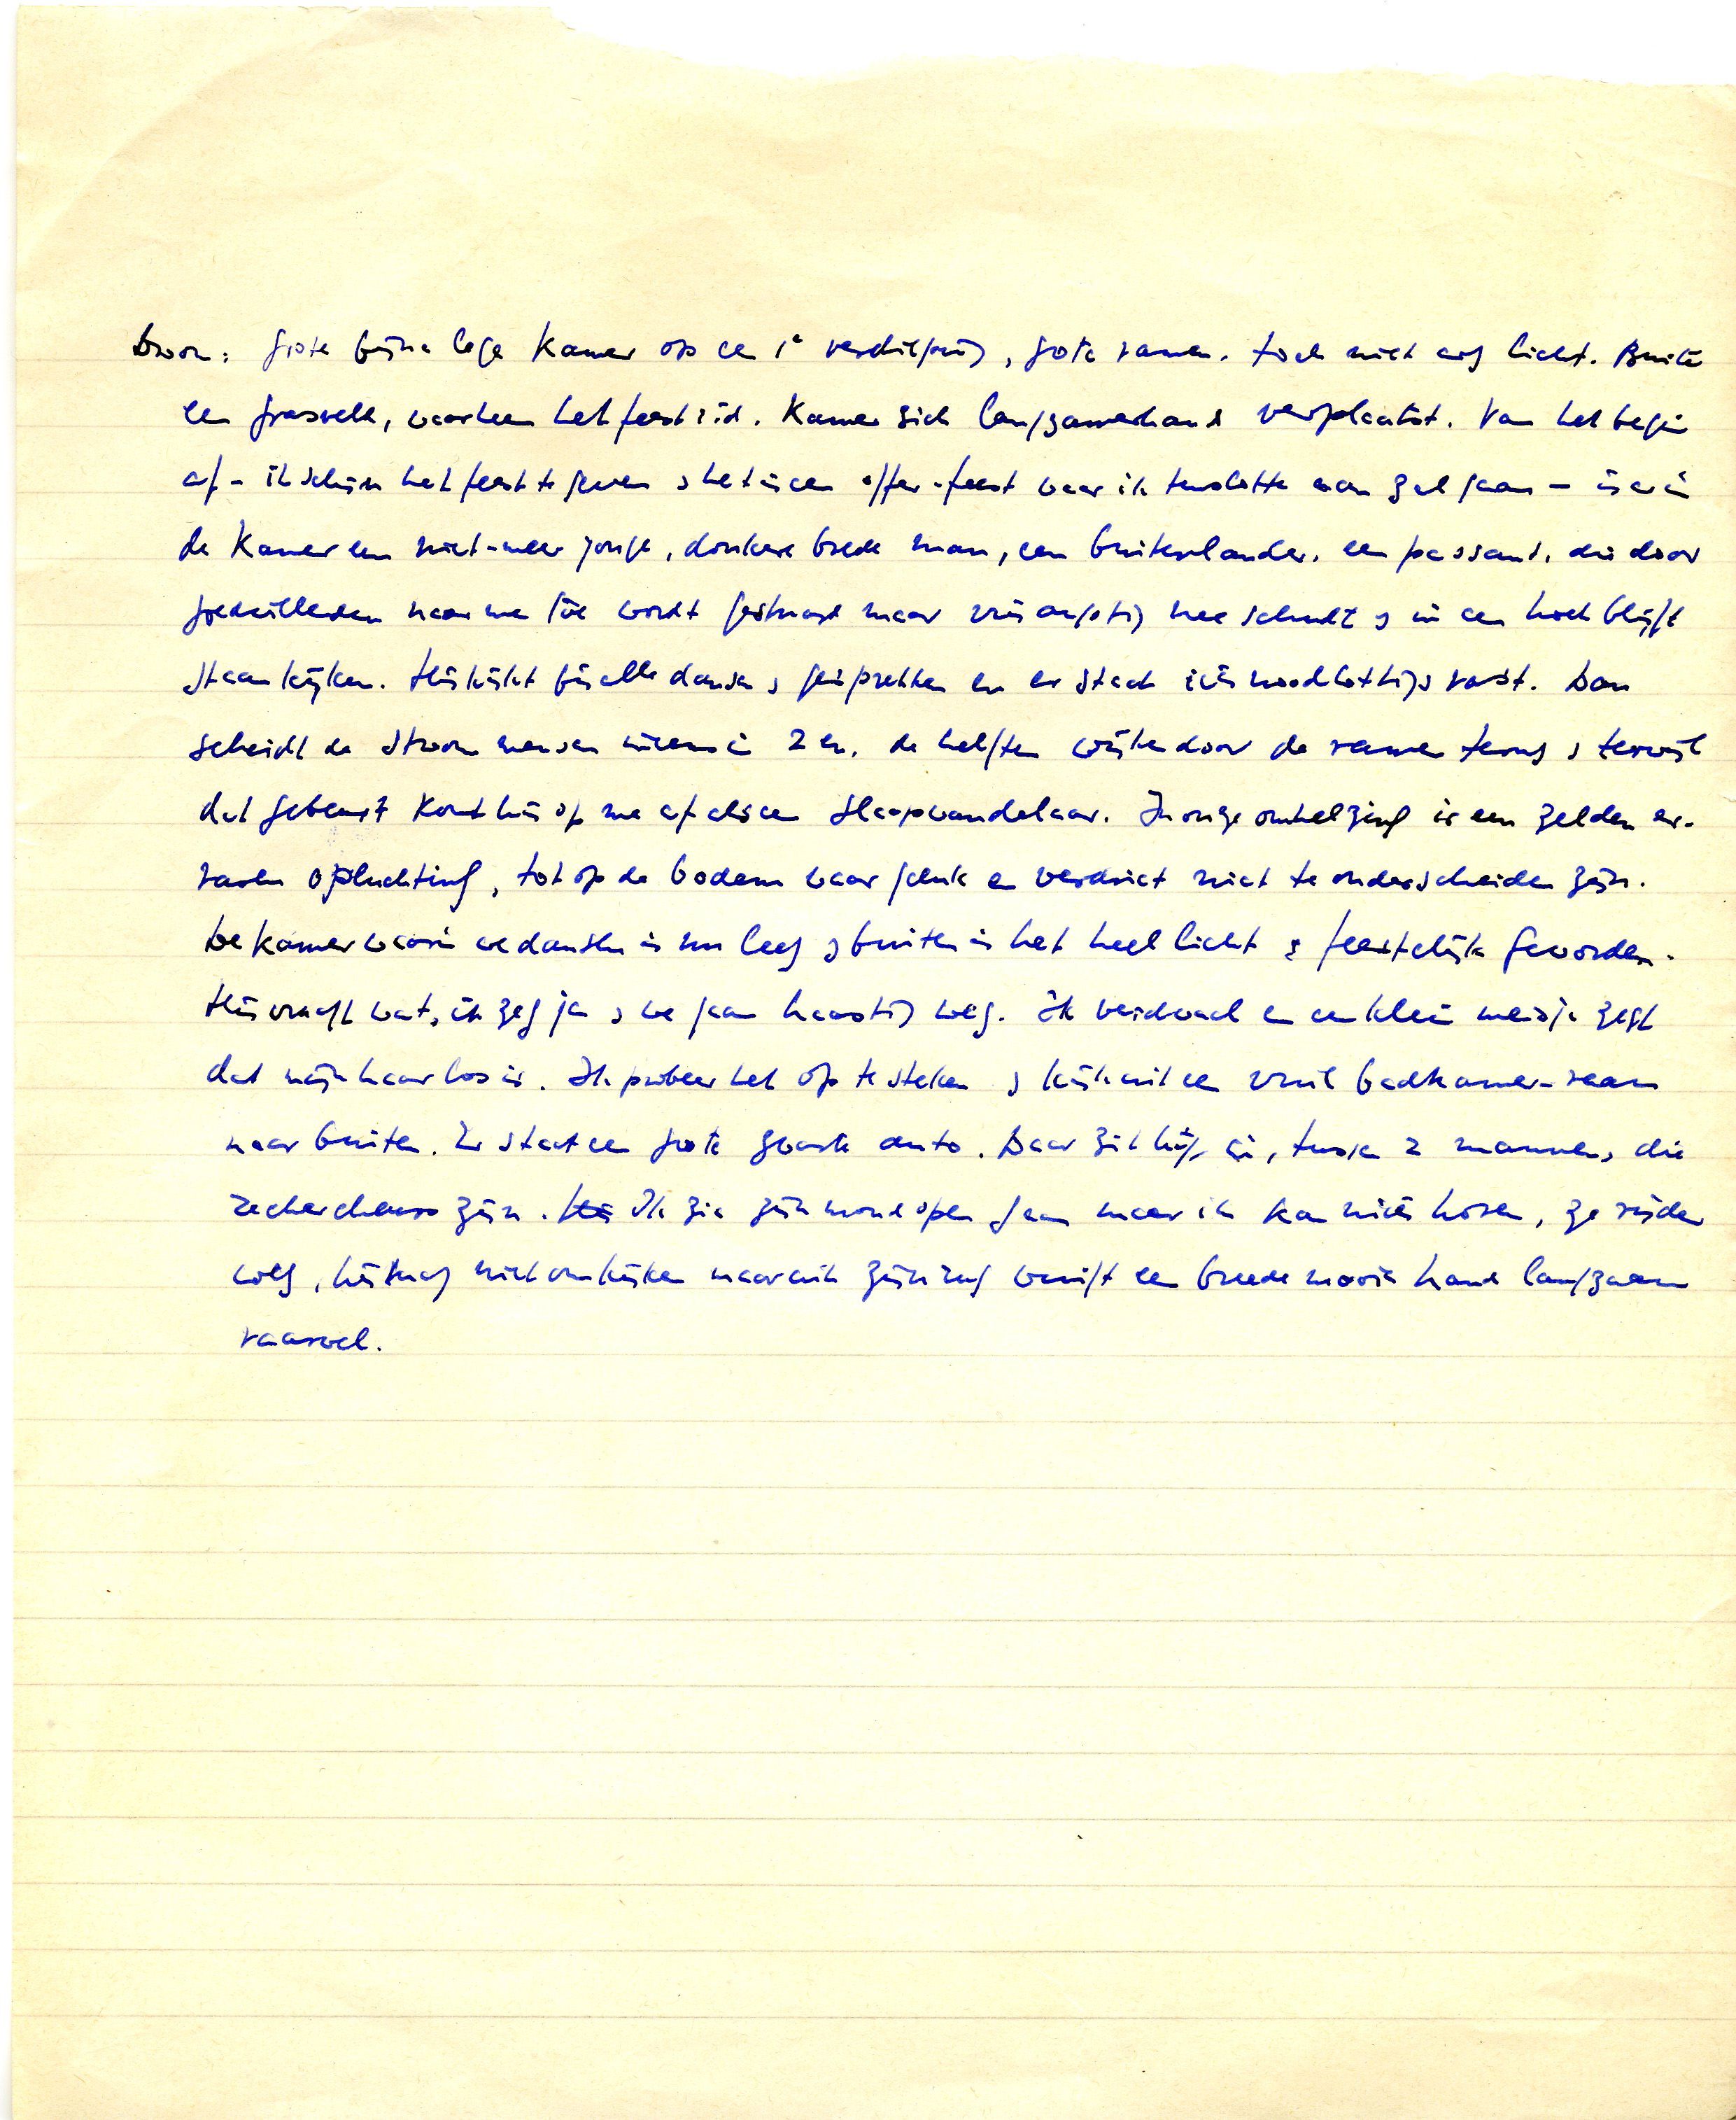 Droom: grote bijna lege kamer op een 1e verdieping, grote ramen. toch niet erg licht. Buiten
een grasveld, waarheen het feest i.d. kamer zich langzamerhand verplaatst. Van het begin
af - ik schijn het feest te geven & het is een offer-feest waar ik tenslotte aan zal gaan - is er in
de kamer een niet-meer jonge, donkere brede man, een buitenlander, een passant, die door
goedwillenden naar me toe wordt gestuurd maar vrij angstig nee schudt & in een hoek blijft
staan kijken. Hij kijkt bij alle dansen & gesprekken en er staat iets noodlottigs vast. Dan
scheidt de stroom mensen ineens in 2 en. de helften wijken door de ramen terug & terwijl
dat gebeurt komt hij op me af als een slaapwandelaar. In onze omhelzing is een zelden er-
varen opluchting, tot op de bodem waar geluk en verdriet niet te onderscheiden zijn.
De kamer waarin we dansten is nu leeg & buiten is het heel licht & feestelijk geworden.
Hij vraagt wat, ik zeg ja & we gaan haastig weg. Ik verdwaal en een klein meisje zegt
dat mijn haar los is. Ik probeer het op te steken & kijk uit een vuil badkamer-raam
naar buiten. Er staat een grote zwarte auto. Daar zit hij in, tussen 2 mannen, die
rechercheurs zijn. Ik zie zijn mond open gaan maar ik kan niets horen, ze rijden
weg, hij mag niet omkijken maar achter zijn rug wuift een brede mooie hand langzaam
vaarwel.